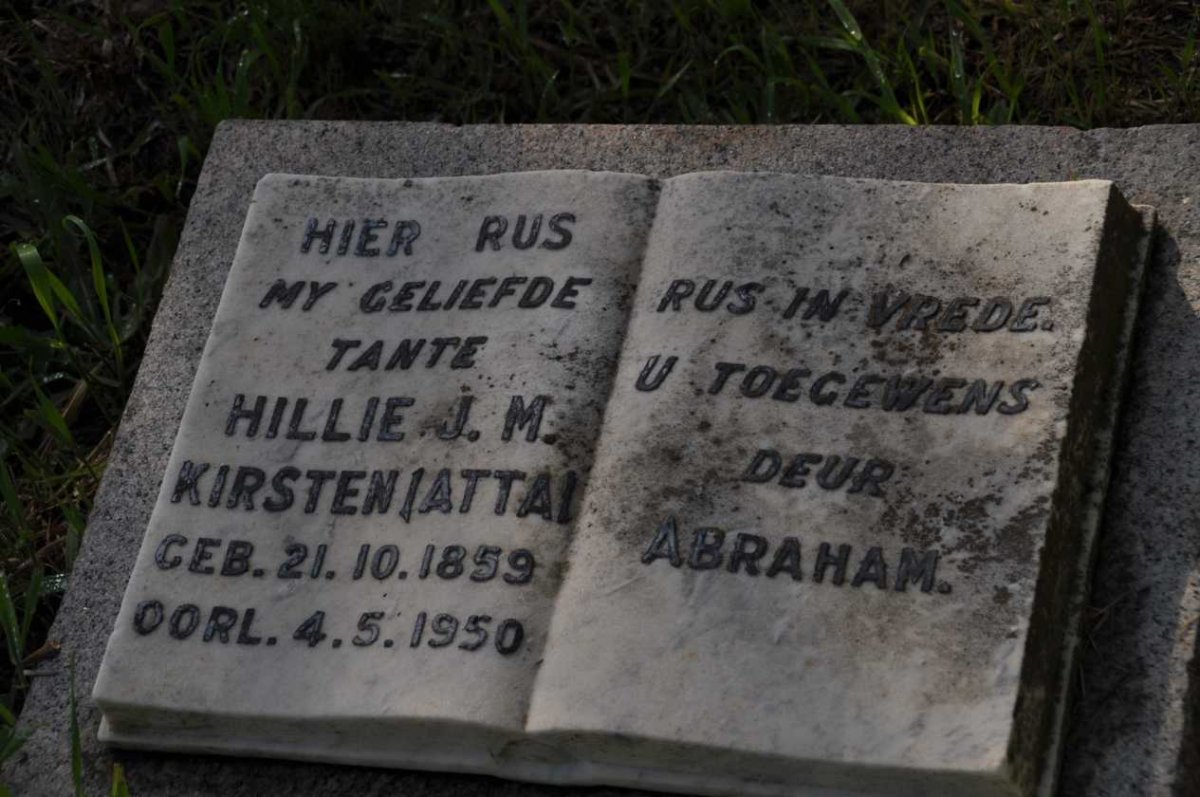 HIER RUS
MY GELIEFDE
TANTE
HILLIE J. M.
KIRSTEN (ATTA)
GEB. 21. 10. 1859
OORL. 4. 5. 1950
RUS IN VREDE.
U TOEGEWENS
DEUR
ABRAHAM.